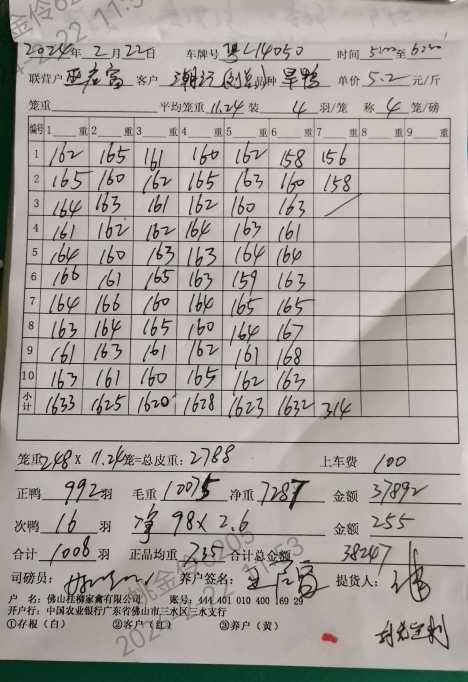 2024年 2月22日 车牌号 粤L14050 时间 至
联营户 客户 品种 旱鸭 单价 5.2 元/斤
笼重 平均笼重 11.24 装 4 羽/笼 称 4 笼/磅
编号 1 重 2 重 3 重 4 重 5 重 6 重 7 重 8 重 9 重
1 162 165 161 160 162 158 156
2 165 160 162 165 163 160 158
3 164 163 161 162 160 163
4 161 162 162 164 163 161
5 164 160 163 163 164 164
6 166 161 165 163 159 163
7 164 166 160 164 165 165
8 163 164 165 160 164 167
9 161 163 161 162 161 168
10 163 161 160 165 162 163
小计 1633 1625 1620 1628 1623 1632 314
笼重 248 × 11.24 笼=总皮重: 2788 上车费 100
正鸭 992 羽 毛重 10075 净重 7287 金额 37892
次鸭 16 羽 净 98×2.6 金额 255
合计 1008 羽 正品均重 7.35 合计总金额 38247
司磅员: 养户签名: 提货人:
户 名: 佛山桂柳家禽有限公司 账号: 444 401 010 400 169 29
开户行: 中国农业银行广东省佛山市三水区三水支行
①存根(白) ②客户(红) ③养户(黄)